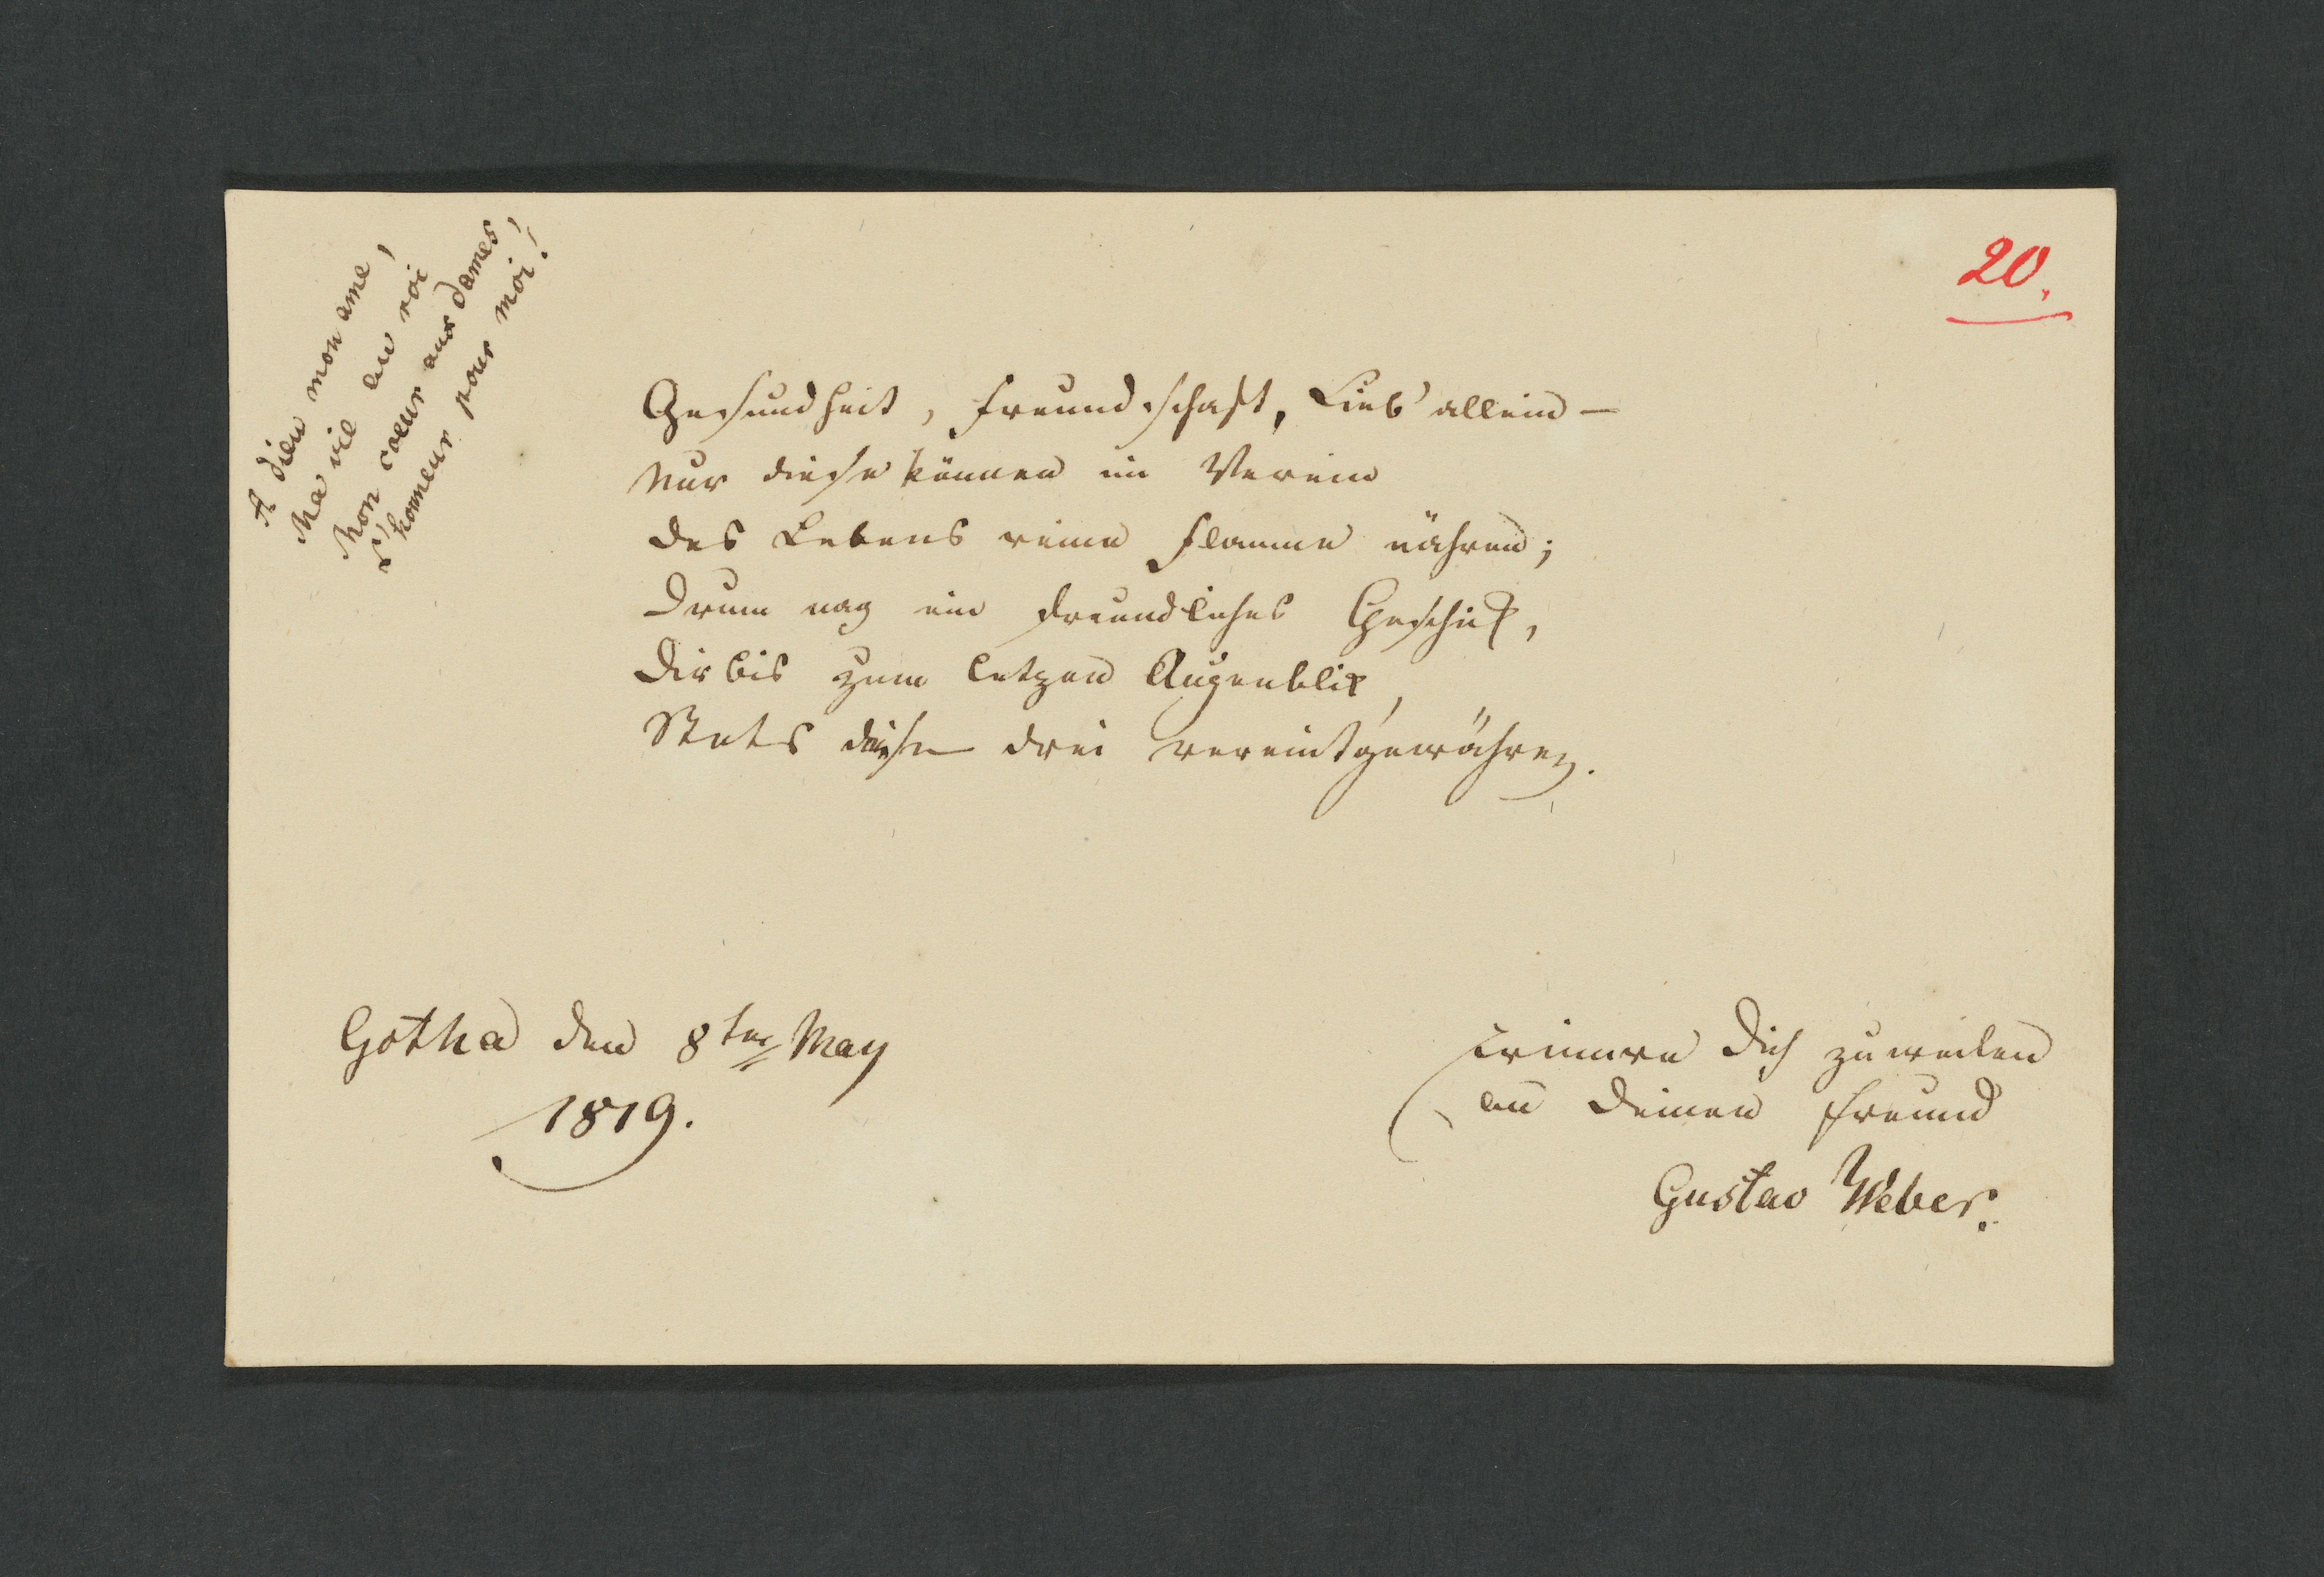 A dieu mon ame,
Ma vie au roi
Mon coeur aux dames,
L'honneur pour moi!
20.
Gesundheit, Freundschaft, Lieb' allein –
Nur diese können im Verein
Des Lebens reine Flamme nähren;
Drum mag ein freundliches Geschik,
Dir bis zum letzen Augenblik,
Stets diese drei vereint gewähren.
Gotha den 8ten May
1819.
Erinnre Dich zuweilen
an Deinen Freund
Gustav Weber.